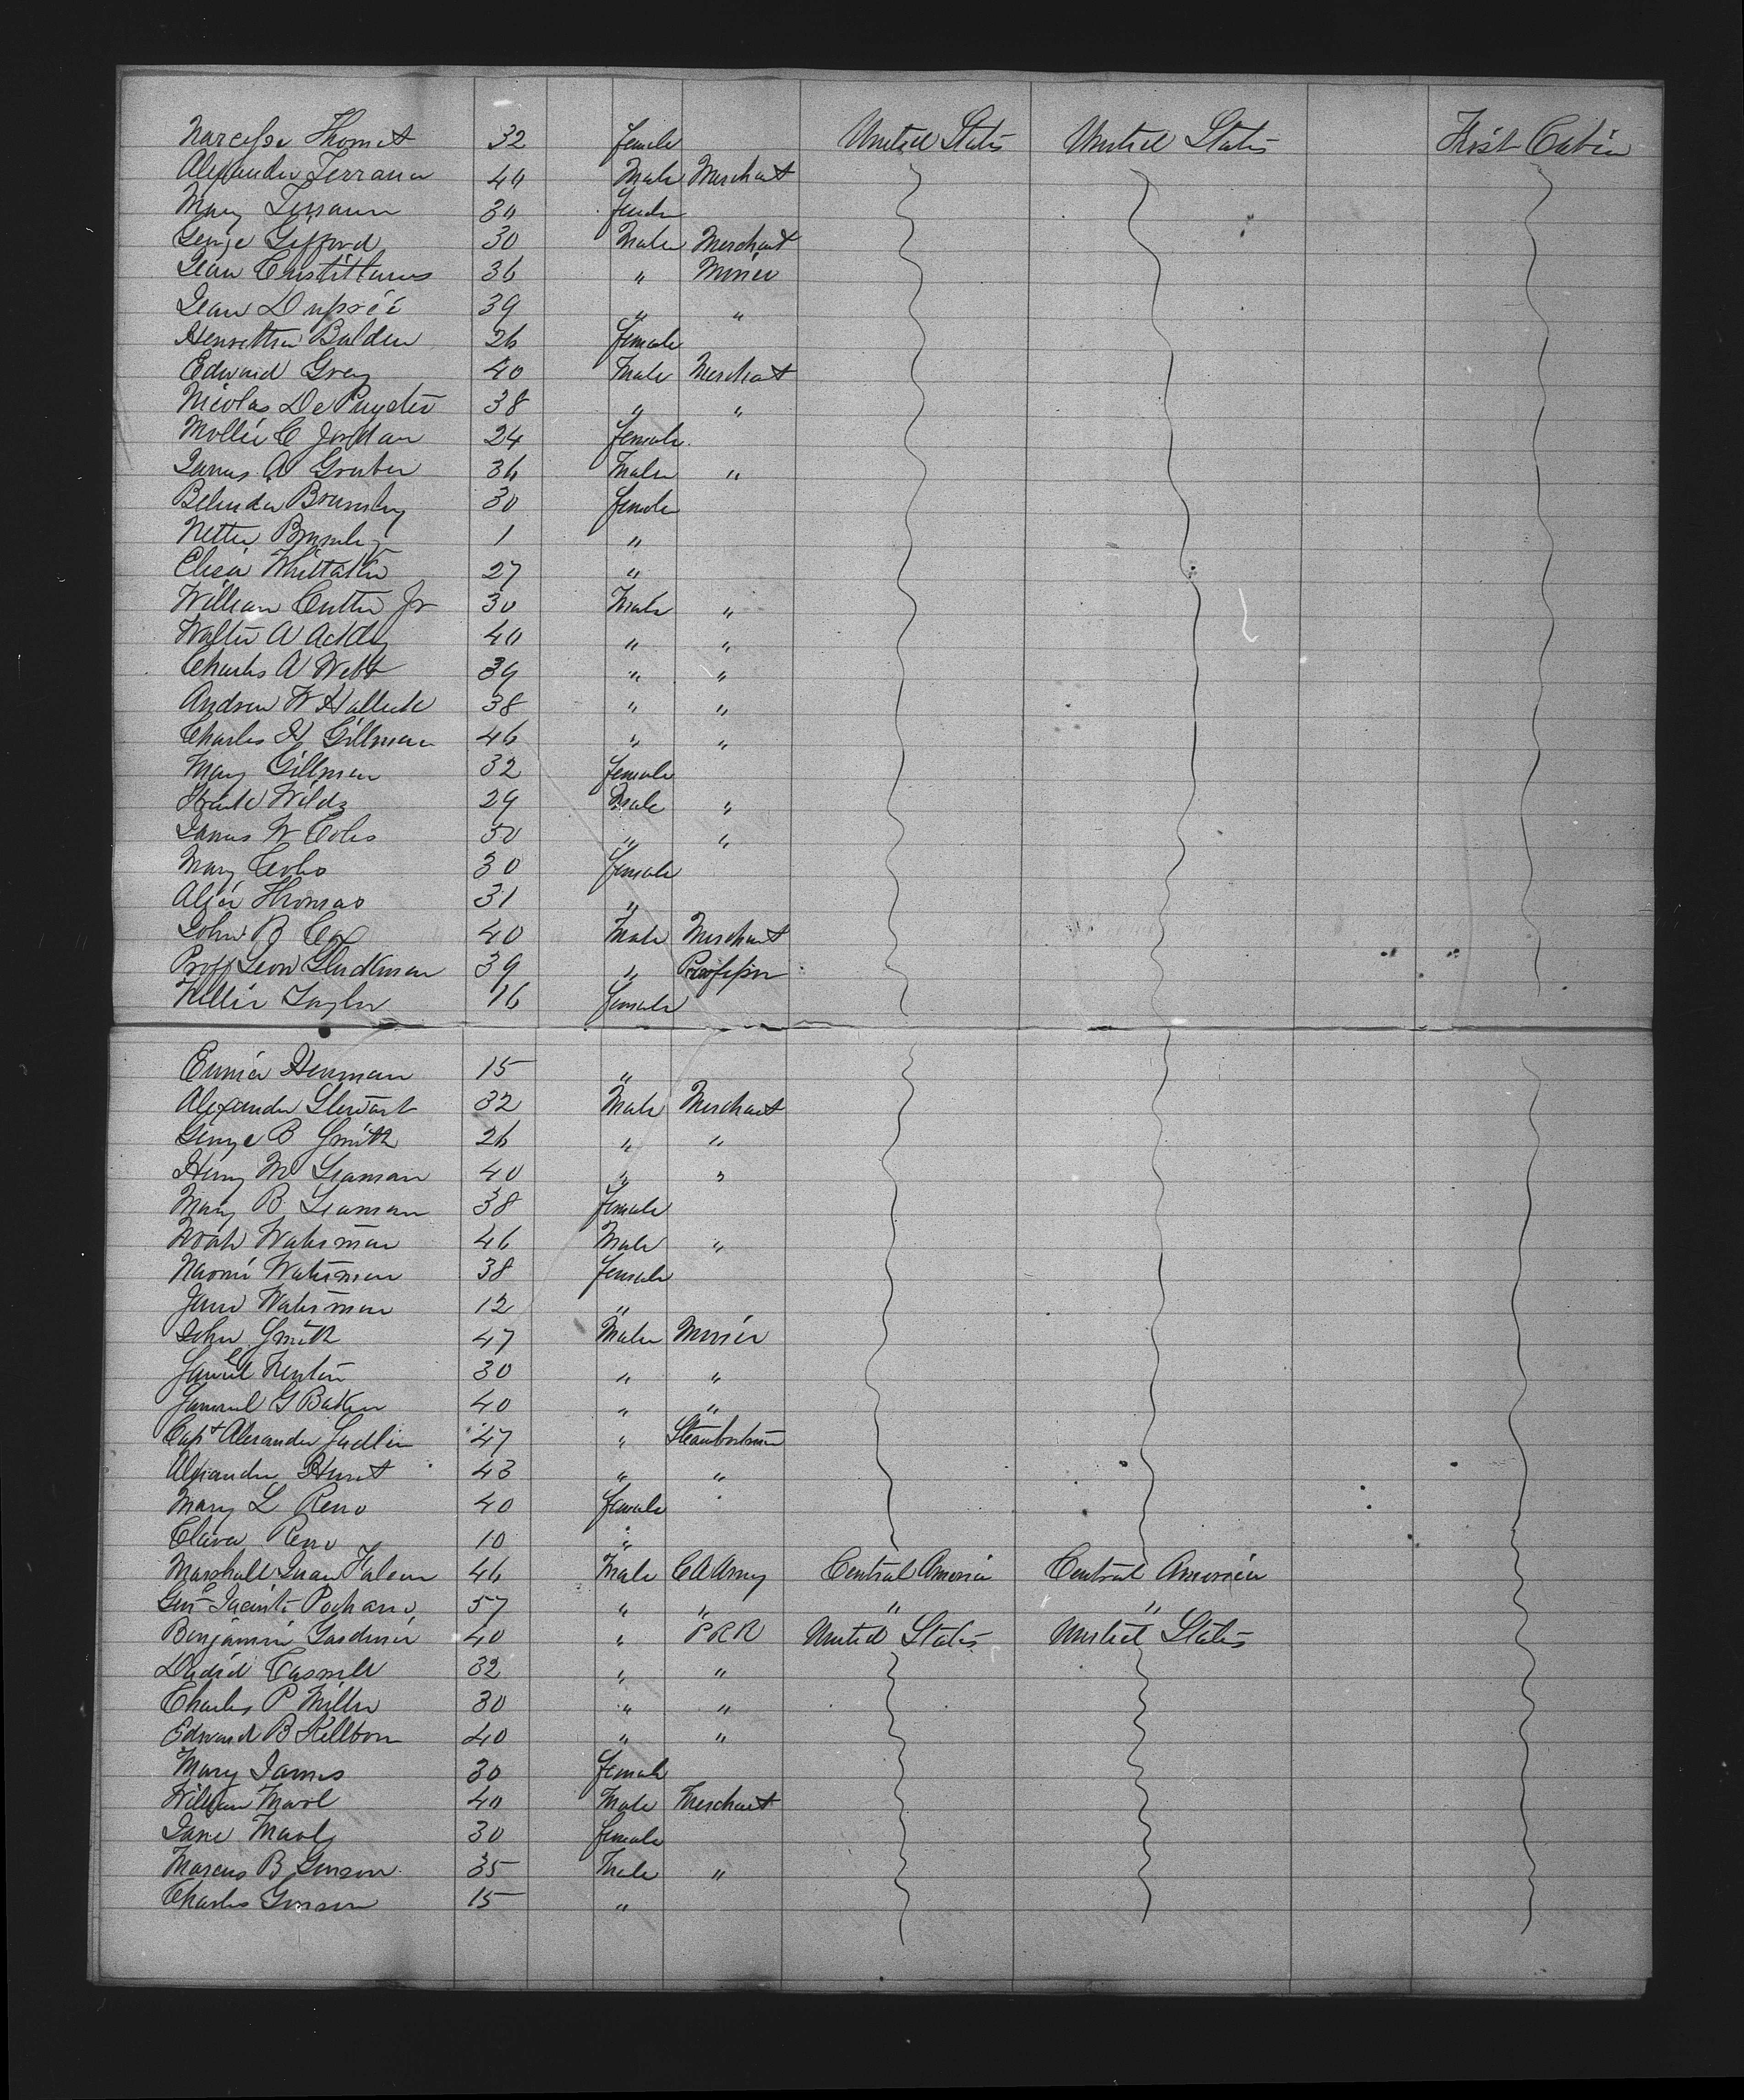 Narcesse Thomet 32 female United States United States First Cabin
Alexander Ferrann 40 Male Merchant
Mary Ferrann 30 female
George Gifford 30 Male Merchant
Jean 36 " Miner
Jean Dupréé 39 " "
Henrettia Balden 26 female
Edward Grey 40 Male Merchant
Nicolas De Puyster 38 " "
Mollie C Jordan 24 female
James A Gruber 36 Male "
Belinda Bromley 30 female
Nettie Bromley 1 "
Elisia Whittaker 27 "
William Cutter Jr 30 Male "
Walter A 40 " "
Charles A Webb 39 " "
Andrew W Halleck 38 " "
Charles H Gillman 46 " "
Mary Gillman 32 female
Frank Wilds 29 Male "
James W Coles 50 " "
Mary Coles 30 female
Alice Thomas 31 "
John B Cox 40 Male Merchant
Proff Leon 39 " Proffessor
Nellie Taylor 16 female
Emma Henman 15 "
Alexander Stewart 32 Male Merchant
George B Smith 26 " "
Henry M Seaman 40 " "
Mary B Seaman 38 female
Noah Waterman 46 Male "
Naomi Waterman 38 female
Jane Waterman 12 "
John Smith 47 Male Miner
Samuel Newton 30 " "
Samuel G Baker 40 " "
Capt Alexander 47 " Steamboatman
Alexander Hunt 43 " "
Mary L Reno 40 female
Clara Reno 10 "
Marshall Juan 46 Male C A Army Central America Central America
Genl Jacinto 57 " " " "
Benjamin Gardiner 40 " P R R United States United States
David Caswell 32 " "
Charles P Miller 30 " "
Edward B Kellbon 40 " "
Mary James 30 female
William 40 Male Merchant
Jane 30 female
Marcus B Gunson 35 Male "
Charles Gunson 15 "